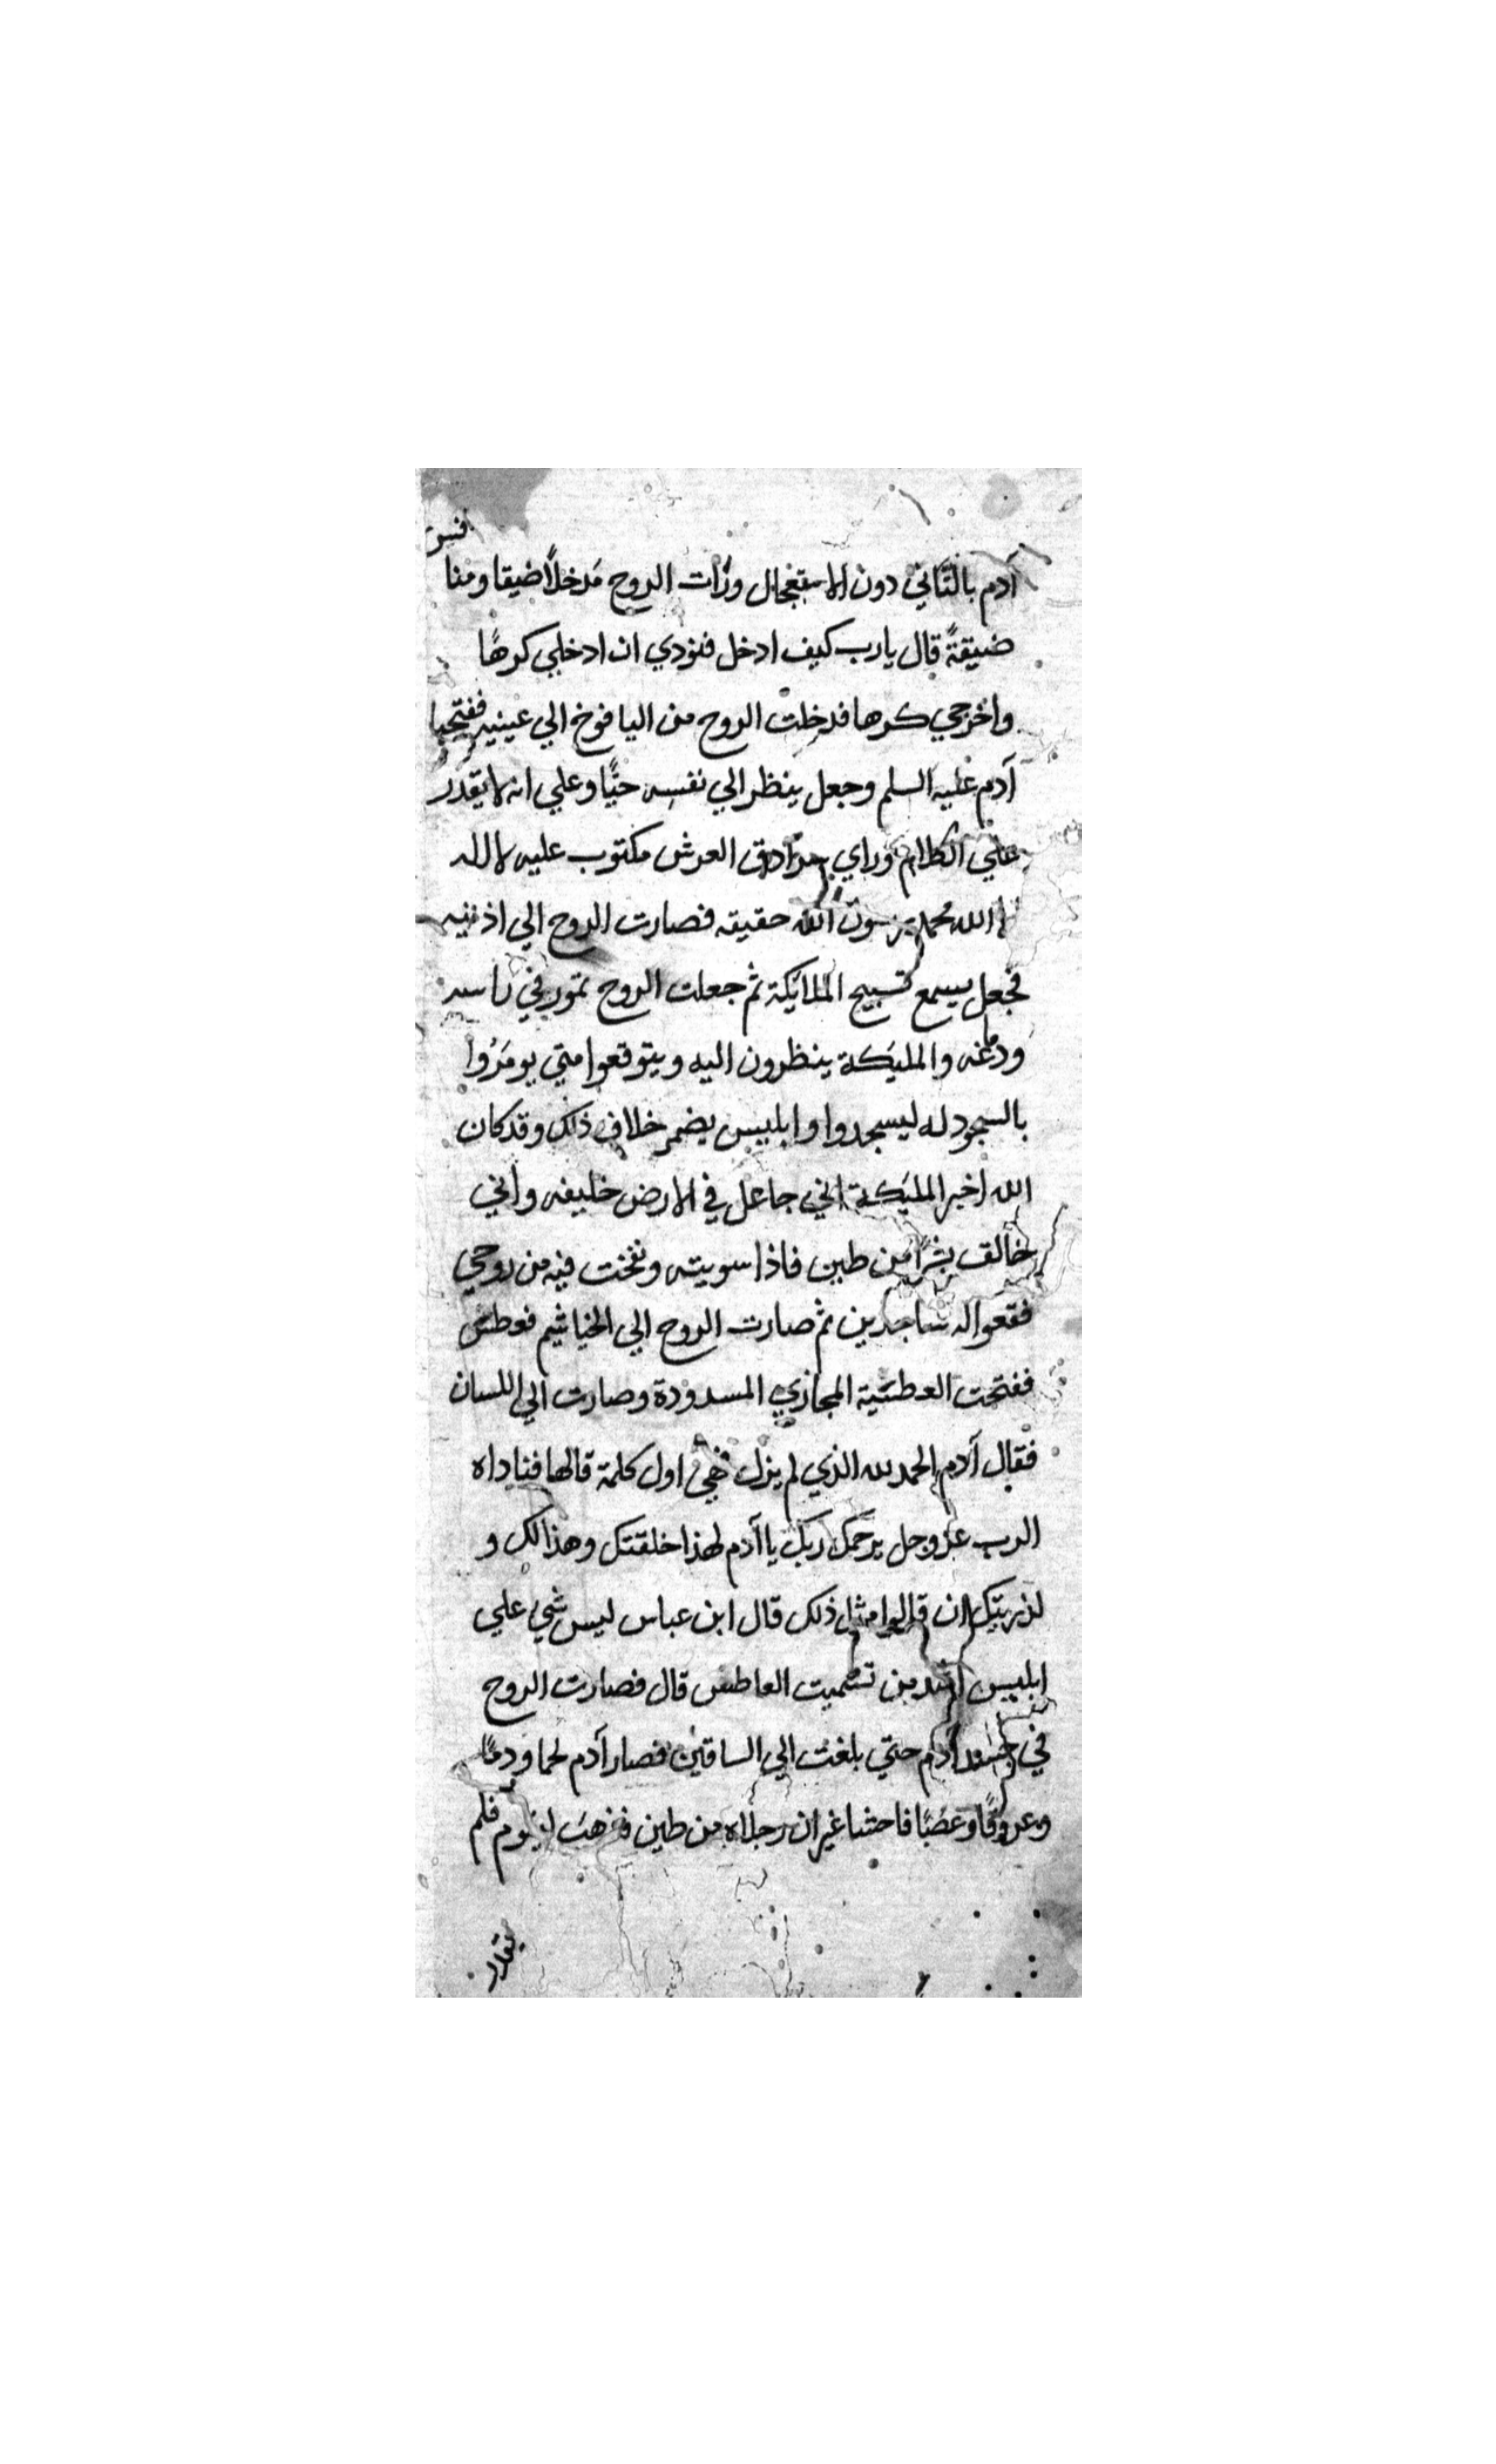 فس
آدم بالتأني دون الاستعجال ورأت الروح مَدخلاً ضيقا ومنا
ضيقةً قال يارب كيف ادخل فنودي ان ادخلي كرهًا
واخرجي كرها فدخلت الروح من اليافوخ الي عينيه ففتحها
آدم عليه السلم وجعل ينظر الي نفسه حيًّا وعلي انه لا يقدر
علي الكلام وراي سرادق العرش مكتوب عليه لا اله
الا الله محمد رسول الله حقيقه فصارت الروح الي اذنيه
فجعل يسمع تسبيح الملائكة ثم جعلت الروح تمور في راسه
ودماغه والمليكة ينظرون اليه ويتوقعوا متي يومَرُوا
بالسجود له ليسجدوا وابليس يضمر خلاف ذلك وقد كان
الله اخبر المليكة اني جاعل في الارض خليفه واني
خالق بشرًا من طين فاذا سويته ونفخت فيه من روحي
فقعوا له ساجدين ثم صارت الروح الي الخياشيم فعطس
ففتحت العطسة المجازي المسدودة وصارت الي اللسان
فقال آدم الحمد لله الذي لم يزل فهي اول كلمة قالها فناداه
الرب عز وجل يرحمك ربك يا آدم لهذا خلقتك وهذا لك و
لذريتك ان قالوا مثل ذلك قال ابن عباس ليس شي علي
ابليس اشد من تشميت العاطس قال فصارت الروح
في جسد آدم حتي بلغت الي الساقين فصار آدم لحما ودمًا
وعروقًا وعصَبًا فاحشا غير ان رجلاه من طين فذهب ليقوم فلم
يقدر